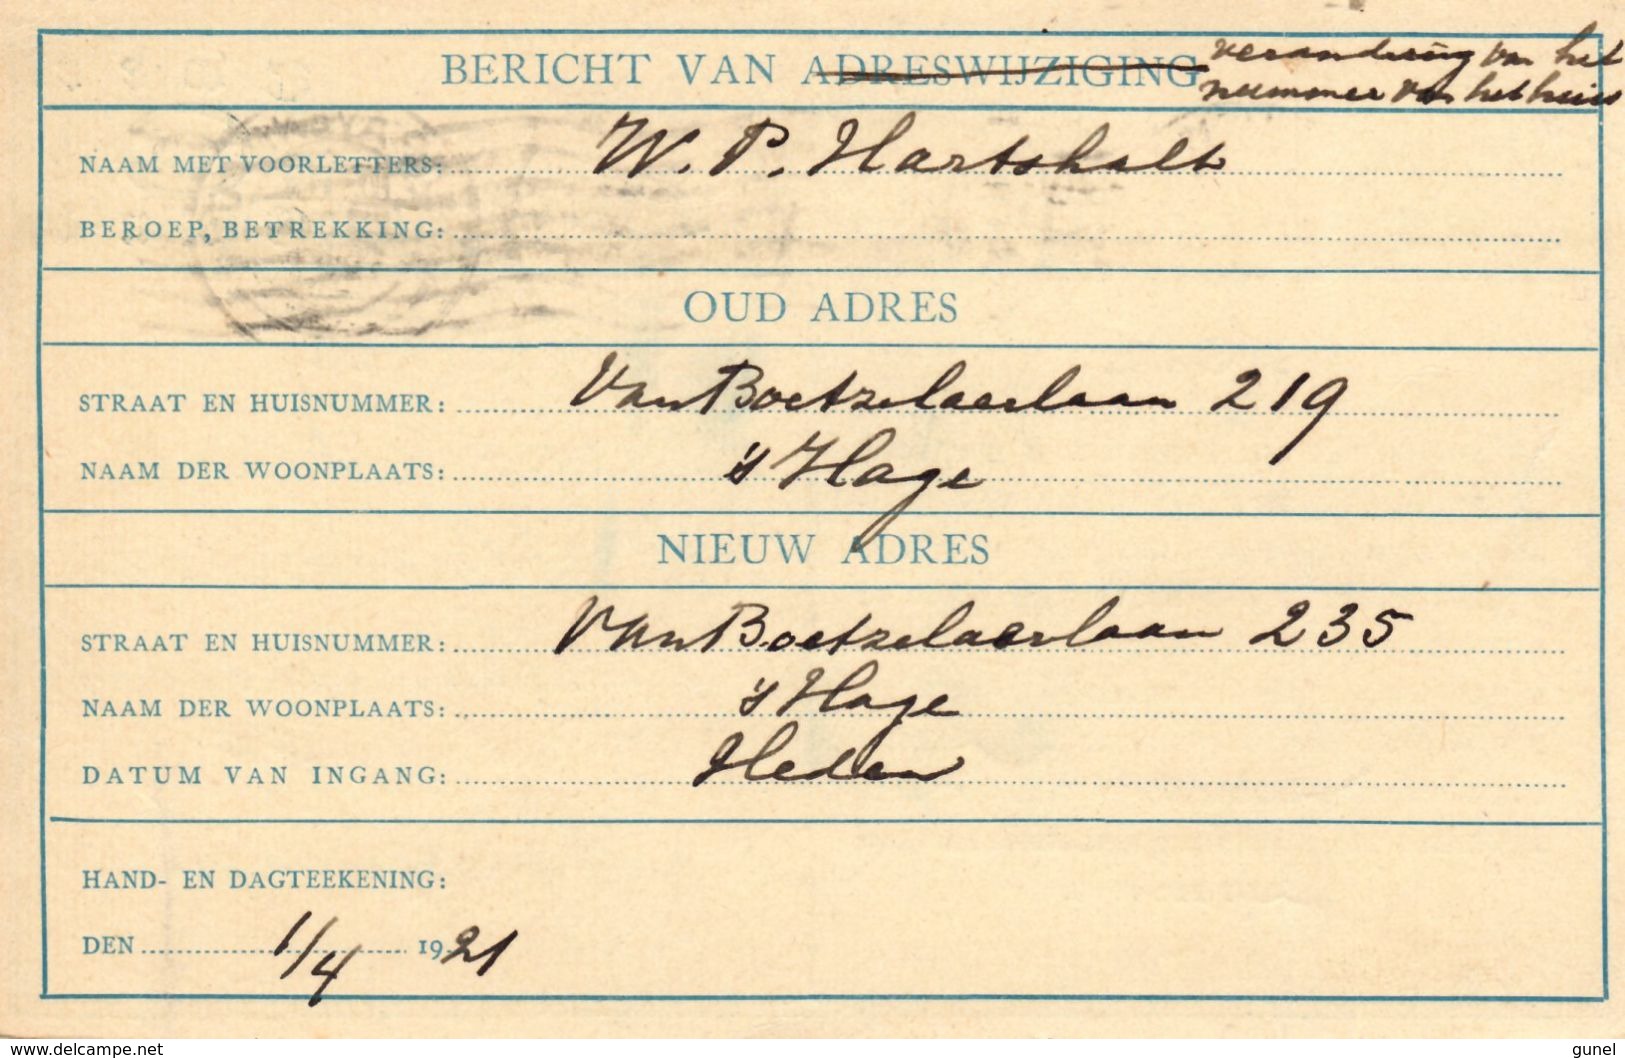 BERICHT VAN ADRESWIJZIGING verandering van het
nummer van het huis
NAAM MET VOORLETTERS: W. P. Hartsholt
BEROEP, BETREKKING:
OUD ADRES
STRAAT EN HUISNUMMER: Van Boetzelaerlaan 219
NAAM DER WOONPLAATS: 's Hage
NIEUW ADRES
STRAAT EN HUISNUMMER: Van Boetzelaerlaan 235
NAAM DER WOONPLAATS: 's Hage
DATUM VAN INGANG: Heden
HAND- EN DAGTEEKENING:
DEN 1/4 1921
www.delcampe.net
gunel